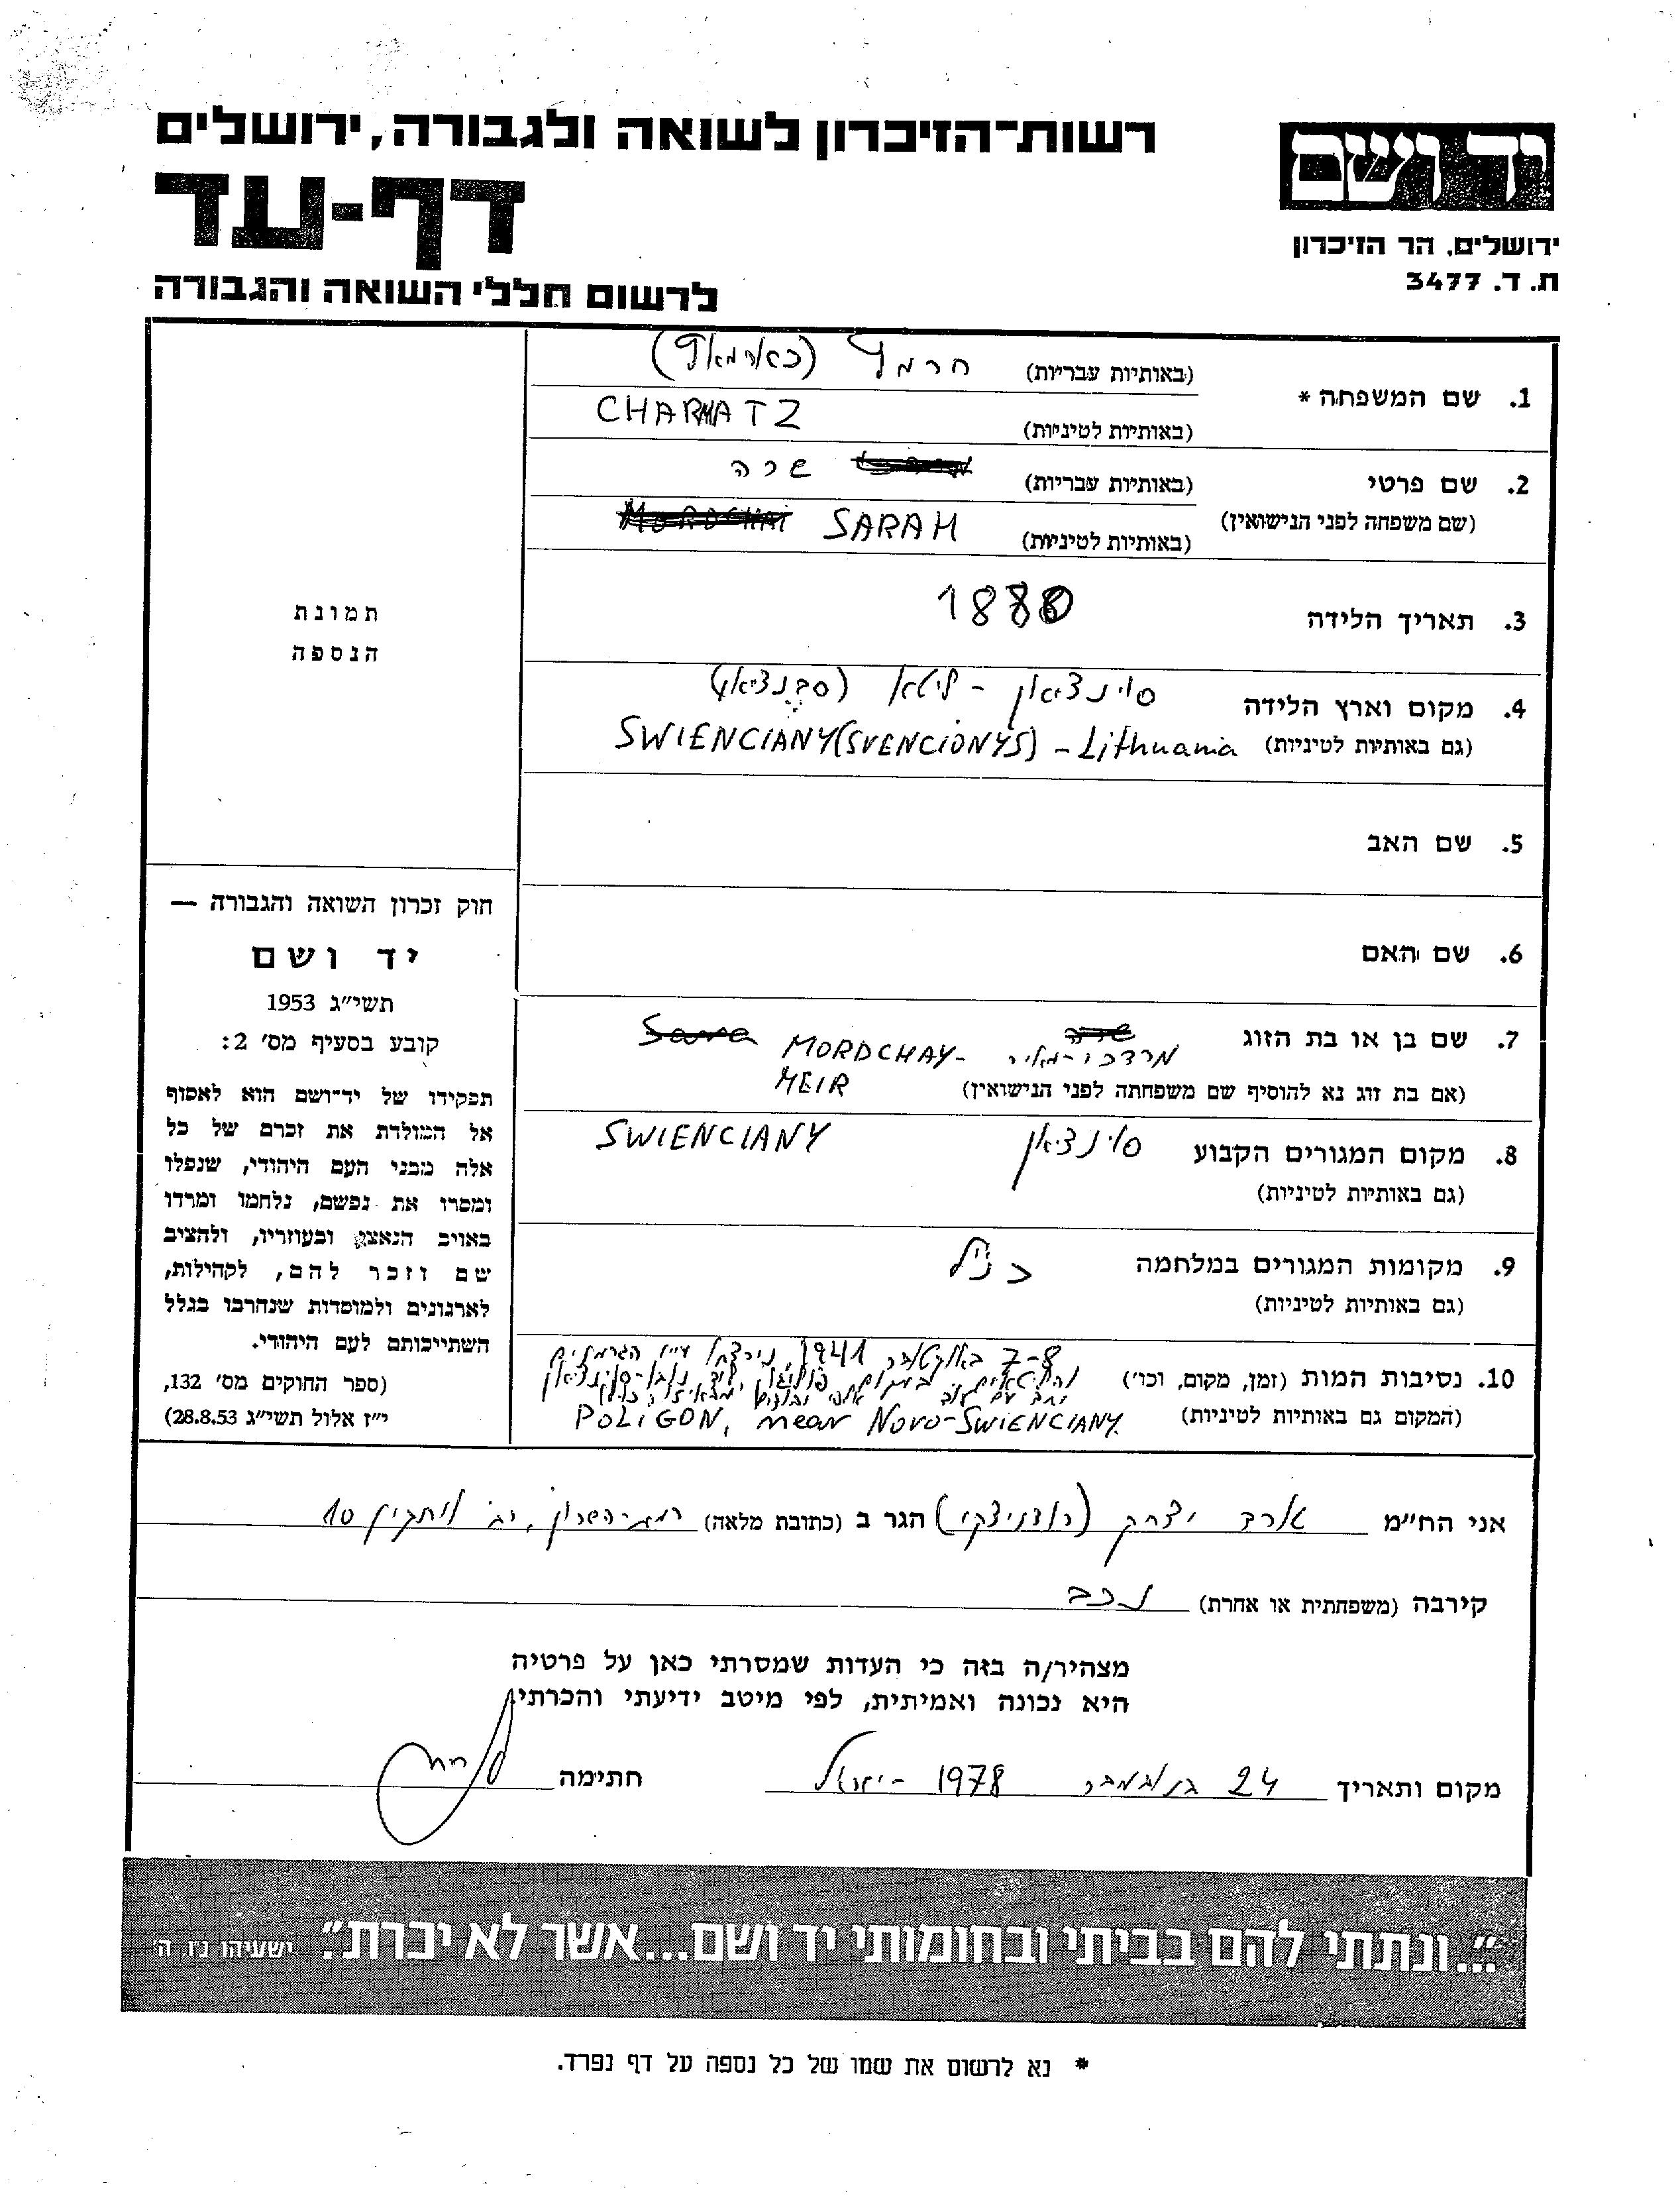 רשות-הזיכרון לשואה ולגבורה, ירושלים
דף-עד
לרשום חללי השואה והגבורה
יד ושם
ירושלים, הר הזיכרון
ת.ד. 3477
1. שם המשפחה * (באותיות עבריות) חרמץ (כארמאץ)
(באותיות לטיניות) CHARMATZ
2. שם פרטי (באותיות עבריות) שרה
(שם משפחה לפני הנישואין) (באותיות לטיניות) MORDCHAI SARAH
3. תאריך הלידה 1880
4. מקום וארץ הלידה סוינציאן - ליטא (סבנציאן)
(גם באותיות לטיניות) SWIENCIANY (SVENCIONYS) - Lithuania
5. שם האב
6. שם האם
7. שם בן או בת הזוג שרה מרדכי-מאיר MORDCHAY- Sara
(אם בת זוג נא להוסיף שם משפחתה לפני הנישואין) MEIR
8. מקום המגורים הקבוע סוינציאן SWIENCIANY
(גם באותיות לטיניות)
9. מקומות המגורים במלחמה כנ"ל
(גם באותיות לטיניות)
7-8 באוקטובר 1941, נירצחו ע"י הגרמנים
10. נסיבות המות (זמן, מקום, וכו') והליטאים במקום פוליגון ליד נובו-סוינציאן
יחד עם
(המקום גם באותיות לטיניות) POLIGON, near NOVO-SWIENCIANY.
תמונת
הנספה
חוק זכרון השואה והגבורה —
יד ושם
תשי"ג 1953
קובע בסעיף מס' 2:
תפקידו של יד-ושם הוא לאסוף
אל המולדת את זכרם של כל
אלה מבני העם היהודי, שנפלו
ומסרו את נפשם, נלחמו ומרדו
באויב הנאצי ובעוזריו, ולהציב
שם וזכר להם, לקהילות,
לארגונים ולמוסדות שנחרבו בגלל
השתייכותם לעם היהודי.
(ספר החוקים מס' 132,
י"ז אלול תשי"ג 28.8.53)
אני הח"מ ארד יצחק (רודניצקי) הגר ב (כתובת מלאה) רמת-השרון, רח' ויתקין 10
קירבה (משפחתית או אחרת) נכד
מצהיר/ה בזה כי העדות שמסרתי כאן על פרטיה
היא נכונה ואמיתית, לפי מיטב ידיעתי והכרתי.
מקום ותאריך 24 בנובמבר 1978 - ישראל חתימה
"...ונתתי להם בביתי ובחומותי יד ושם...אשר לא יכרת". ישעיהו נ"ו, ה'
* נא לרשום את שמו של כל נספה על דף נפרד.